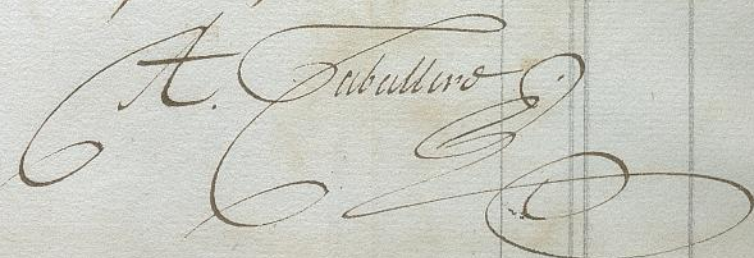 A. Caballero